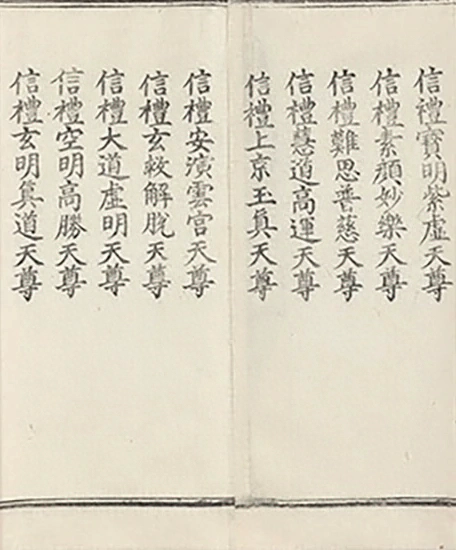 信禮寶明紫虛天尊
信禮素顏妙樂天尊
信禮難思善慈天尊
信禮慧道高運天尊
信禮上京玉真天尊
信禮安濱雲宮天尊
信禮玄敕解脫天尊
信禮大道虛明天尊
信禮空明高勝天尊
信禮玄明真道天尊